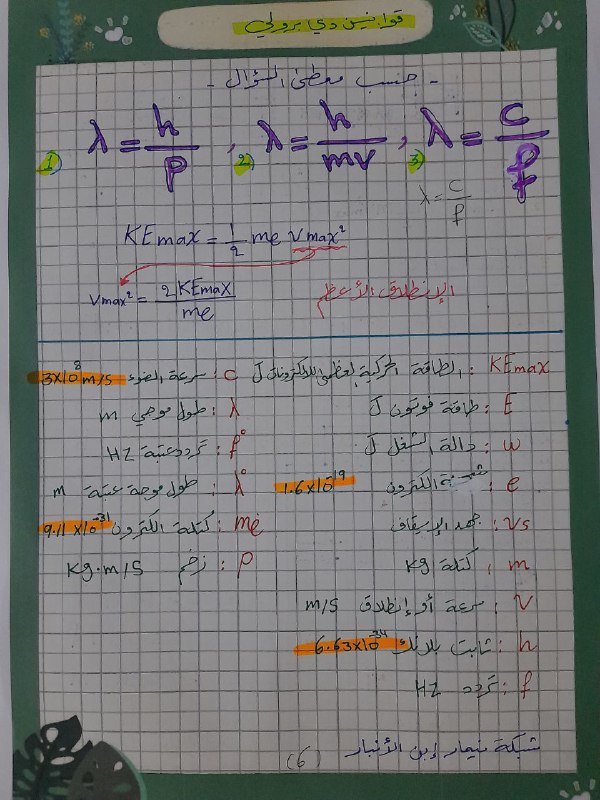 قوانين دي برولي
- حسب معطى السؤال -
1) λ = h/p , 2) λ = h/mv , 3) λ = c/f
λ = c/f
KEmax = 1/2 me vmax²
vmax² = 2KEmax/me الإنطلاق الأعظم
KEmax : الطاقة الحركية العظمى للالكترونات J
C : سرعة الضوء 3x10⁸ m/s
E : طاقة فوتون J
λ : طول موجي m
w : دالة الشغل J
f° : تردد عتبة HZ
e : شحنة الكترون 1.6x10⁻¹⁹
λ° : طول موجة عتبة m
Vs : جهد الإيقاف
me : كتلة الكترون 9.11x10⁻³¹
m : كتلة kg
P : زخم kg.m/s
V : سرعة أو إنطلاق m/s
h : ثابت بلانك 6.63x10⁻³⁴
f : تردد HZ
شبكة نيمار إبن الأنبار
(6)